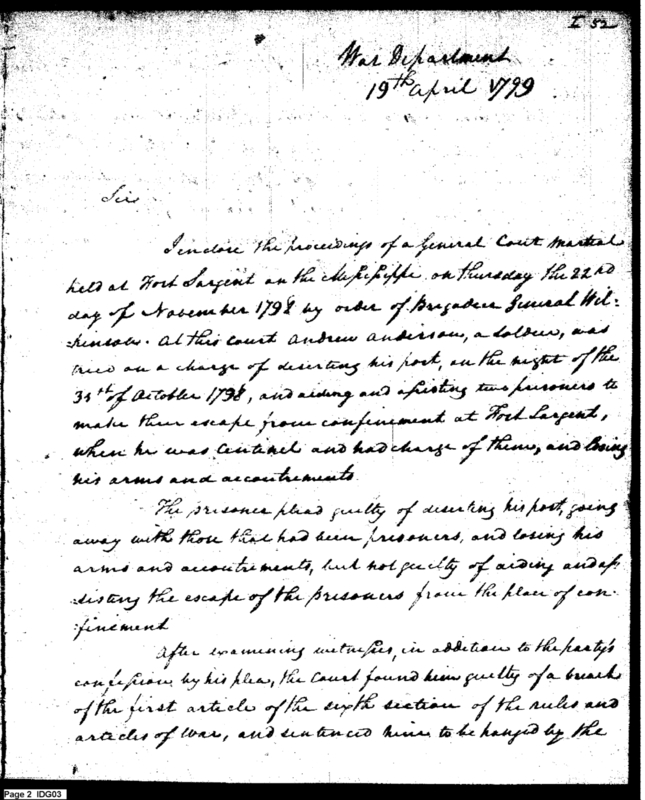 I 52
War Department
19th April 1799
Sir
I enclose the proceedings of a General Court Martial
held at Fort Sargent on the Mississippi on thursday the 22nd
day of November 1798 by order of Brigadier General Wil-
-kinson. At this court Andrew Anderson, a soldier, was
tried on a charge of deserting his post, on the night of the
31st of October 1798, and aiding and assisting two prisoners to
make their escape from confinement at Fort Sargent,
when he was Centinel and had charge of them, and losing
his arms and accoutrements
The prisoner plead guilty of deserting his post, going
away with those that had been prisoners, and losing his
arms and accoutrements, but not guilty of aiding and as-
-sisting the escape of the prisoners from the place of con-
-finement
After examining witnesses, in addition to the party's
confession by his plea, the Court found him guilty of a breach
of the first article of the sixth section of the rules and
articles of war, and sentenced him to be hanged by the
Page 2 IDG03